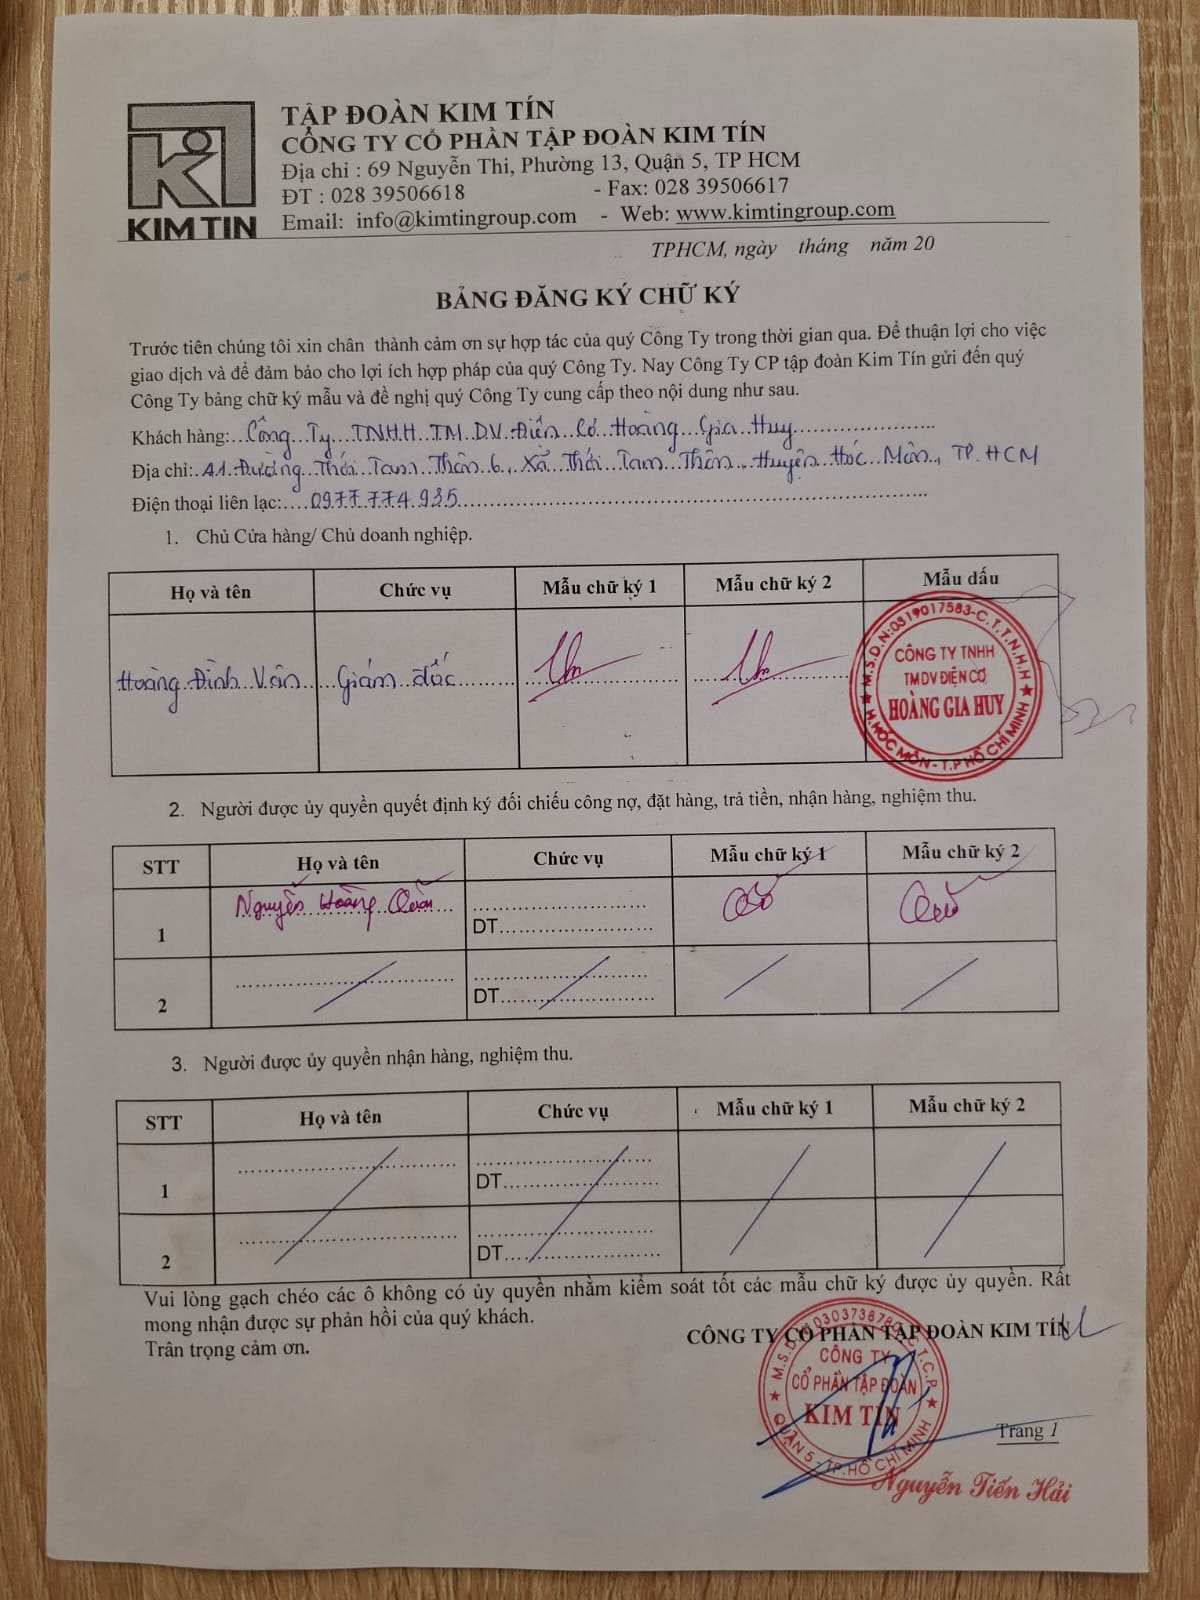 TẬP ĐOÀN KIM TÍN
CÔNG TY CỔ PHẦN TẬP ĐOÀN KIM TÍN
Địa chỉ : 69 Nguyễn Thi, Phường 13, Quận 5, TP HCM
ĐT : 028 39506618 - Fax: 028 39506617
KIM TIN
Email: info@kimtingroup.com - Web: www.kimtingroup.com
TPHCM, ngày tháng năm 20
BẢNG ĐĂNG KÝ CHỮ KÝ
Trước tiên chúng tôi xin chân thành cảm ơn sự hợp tác của quý Công Ty trong thời gian qua. Để thuận lợi cho việc
giao dịch và để đảm bảo cho lợi ích hợp pháp của quý Công Ty. Nay Công Ty CP tập đoàn Kim Tín gửi đến quý
Công Ty bảng chữ ký mẫu và đề nghị quý Công Ty cung cấp theo nội dung như sau.
Khách hàng: Công Ty TNHH TM DV Điện Cơ Hoàng Gia Huy
Địa chỉ: A1 Đường Thới Tam Thôn 6, Xã Thới Tam Thôn, Huyện Hóc Môn, TP. HCM
Điện thoại liên lạc: 0977.774.935
1. Chủ Cửa hàng/ Chủ doanh nghiệp.
Họ và tên Chức vụ Mẫu chữ ký 1 Mẫu chữ ký 2 Mẫu dấu
Hoàng Đình Vân Giám đốc
M.S.D.N:0319017583-C.T.T.N.H.H
CÔNG TY TNHH
TMDV ĐIỆN CƠ
HOÀNG GIA HUY
H.HÓC MÔN - T.P HỒ CHÍ MINH
2. Người được ủy quyền quyết định ký đối chiếu công nợ, đặt hàng, trả tiền, nhận hàng, nghiệm thu.
STT Họ và tên Chức vụ Mẫu chữ ký 1 Mẫu chữ ký 2
1 Nguyễn Hoàng DT
2 DT
3. Người được ủy quyền nhận hàng, nghiệm thu.
STT Họ và tên Chức vụ Mẫu chữ ký 1 Mẫu chữ ký 2
1 DT
2 DT
Vui lòng gạch chéo các ô không có ủy quyền nhằm kiểm soát tốt các mẫu chữ ký được ủy quyền. Rất
mong nhận được sự phản hồi của quý khách.
Trân trọng cảm ơn.
CÔNG TY CỔ PHẦN TẬP ĐOÀN KIM TÍN
CÔNG TY
CỔ PHẦN TẬP ĐOÀN
KIM TÍN
QUẬN 5 - TP.HỒ CHÍ MINH
Trang 1
Nguyễn Tiến Hải